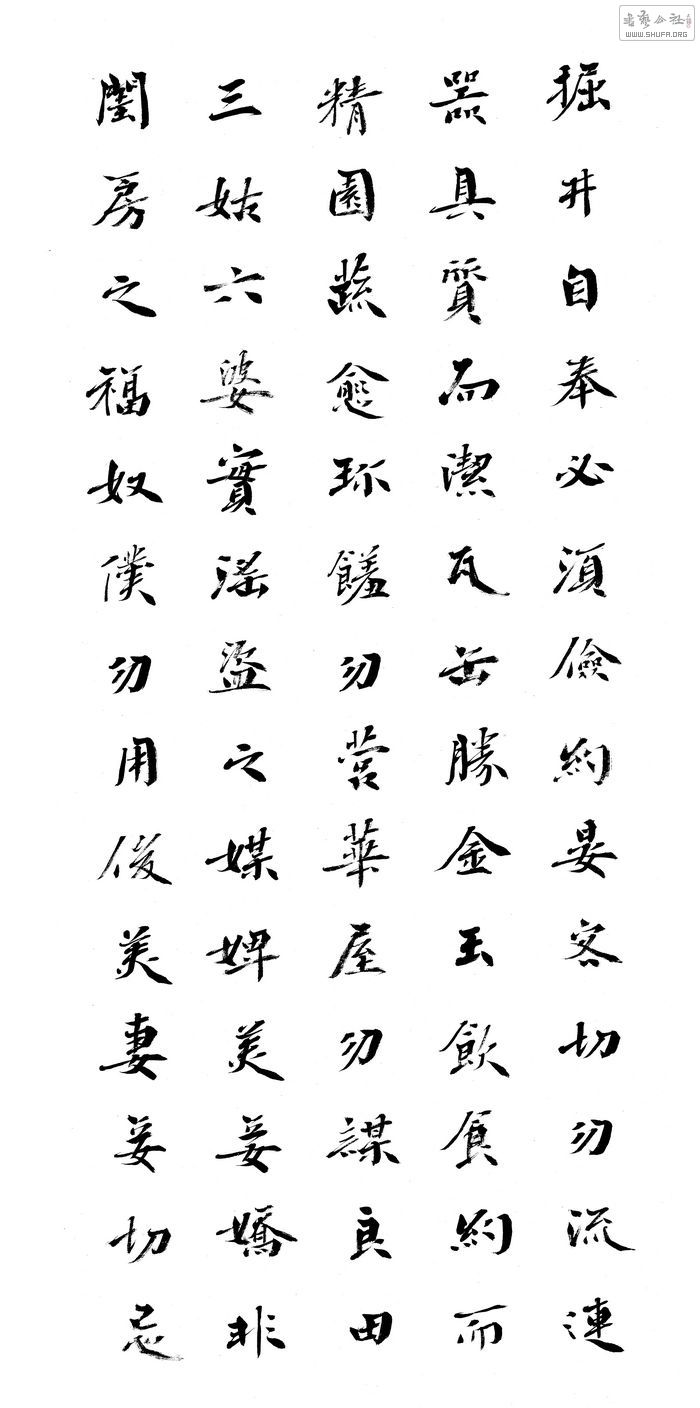 掘井自奉必須儉約晏客切勿流連
器具質而潔瓦缶勝金玉飲食約而
精園蔬愈珎饈勿營華屋勿謀良田
三姑六婆實滛盜之媒婢美妾嬌非
閨房之福奴僕勿用俊美妻妾切忌
書藝公社
WWW.SHUFA.ORG